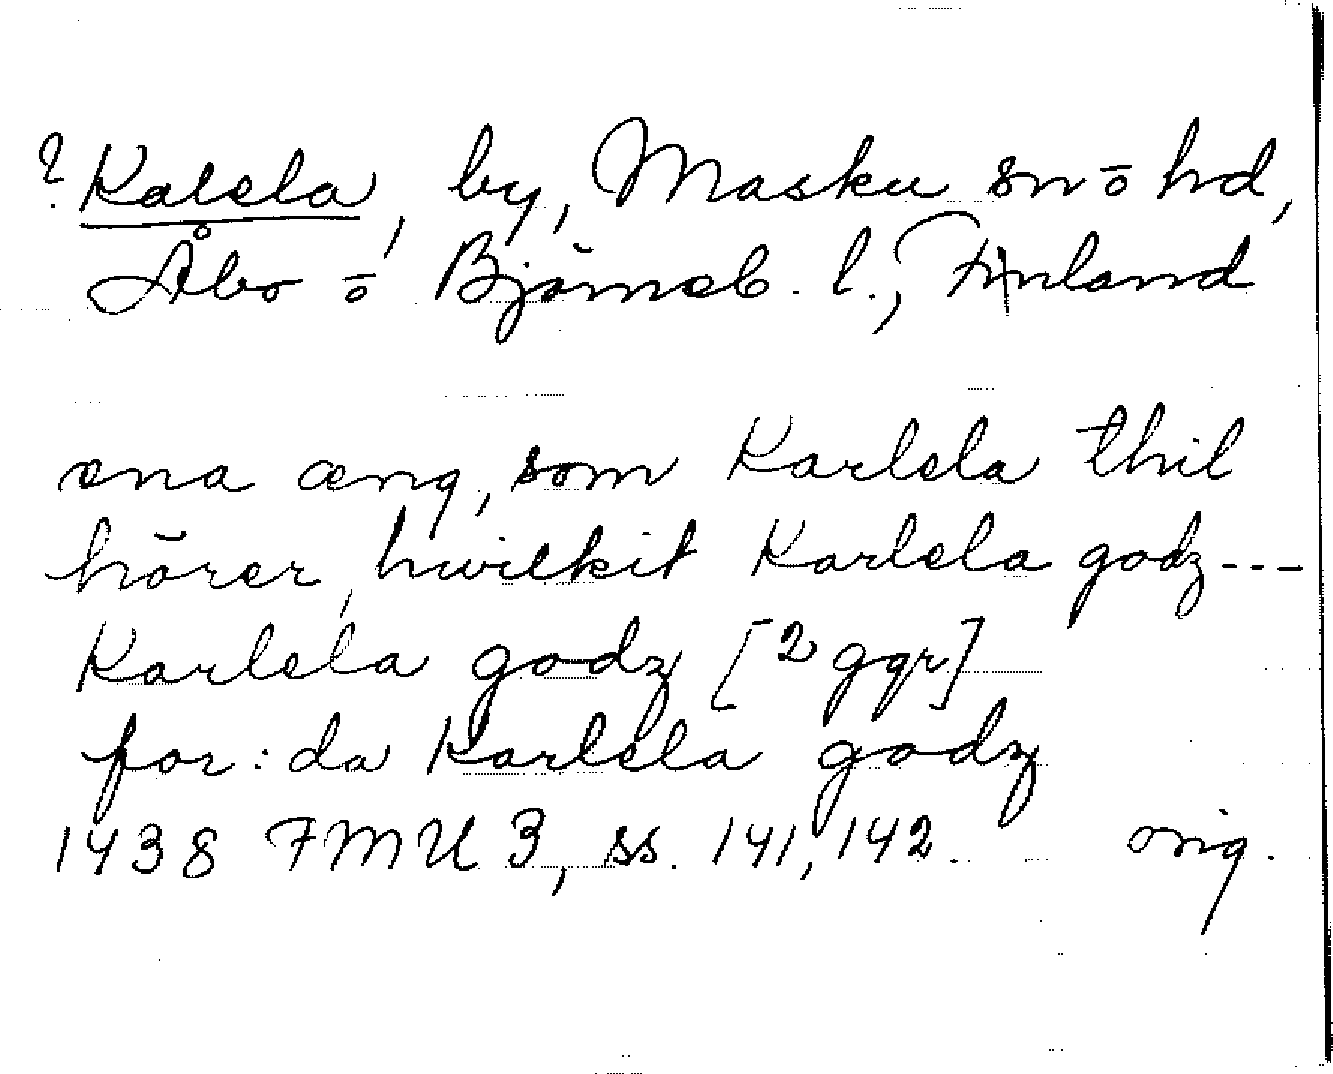 ? Kalela, by, Masku sn o hd,
Åbo o Björneb. l., Finland
ena æng, som Karlela thil
hörer, hwilkit Karlela godz ---
Karlela godz [2 ggr]
for: da Karlela godz
1438 FMU 3, ss. 141, 142. orig.